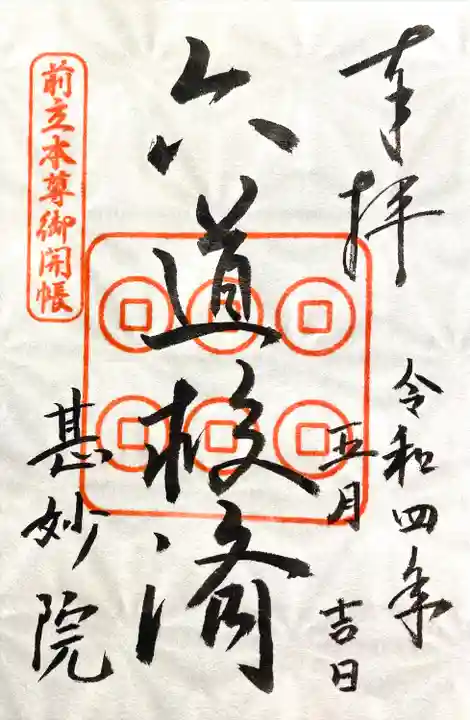 奉拝
令和四年
五月 吉日
六道救済
前立本尊御開帳
甚妙院